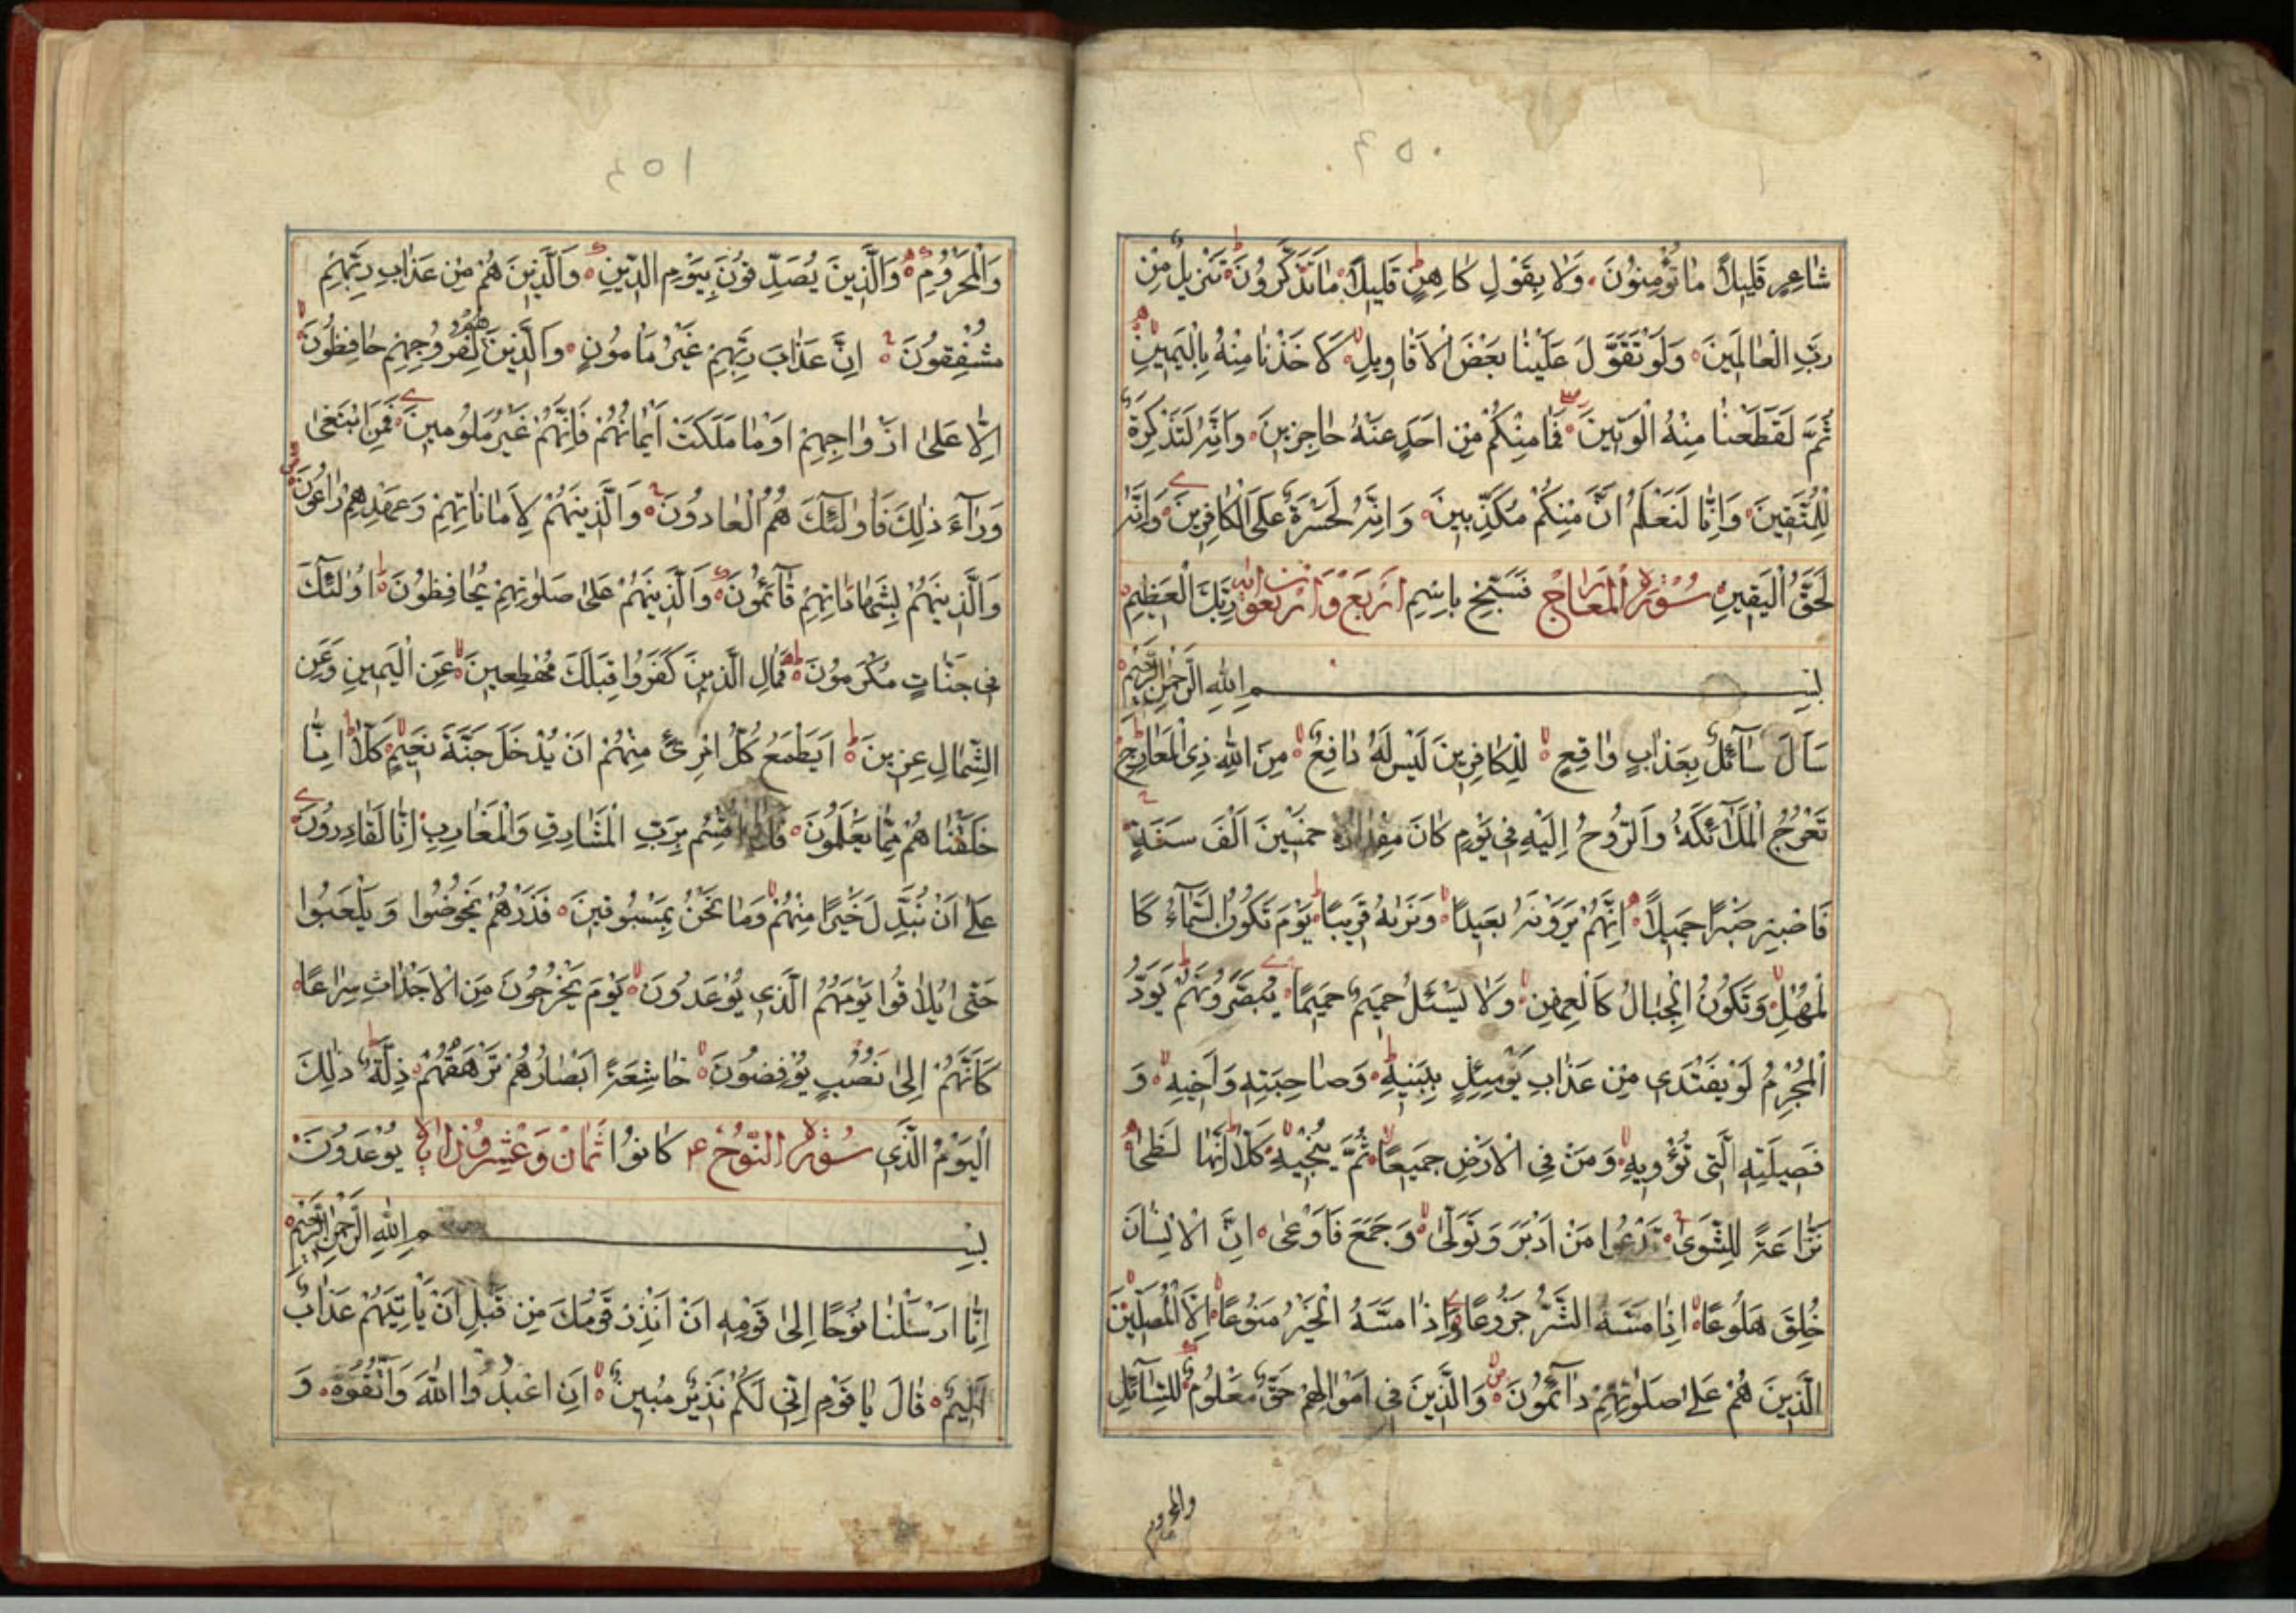 ۴۵۰
شاعِرٍ قَليلًا ما تُؤْمِنُونَ وَلا بِقَوْلِ كاهِنٍ قَليلًا ما تَذَكَّرُونَ تَنْزيلٌ مِنْ
رَبِّ الْعالَمينَ وَلَوْ تَقَوَّلَ عَلَيْنا بَعْضَ الْاَقاويلِ لَاَخَذْنا مِنْهُ بِالْيَمينِ
ثُمَّ لَقَطَعْنا مِنْهُ الْوَتينَ فَما مِنْكُمْ مِنْ اَحَدٍ عَنْهُ حاجِزينَ وَاِنَّهُ لَتَذْكِرَةٌ
لِلْمُتَّقينَ وَاِنّا لَنَعْلَمُ اَنَّ مِنْكُمْ مُكَذِّبينَ وَاِنَّهُ لَحَسْرَةٌ عَلَى الْكافِرينَ وَاِنَّهُ
لَحَقُّ الْيَقينِ سُورَةُ الْمَعارِج فَسَبِّحْ بِاسْمِ اَرْبَعٌ وَاَرْبَعُونَ اية رَبِّكَ الْعَظيمِ
بِسْمِ اللهِ الرَّحْمنِ الرَّحيمِ
سَاَلَ سآئِلٌ بِعَذابٍ واقِعٍ لِلْكافِرينَ لَيْسَ لَهُ دافِعٌ مِنَ اللهِ ذِي الْمَعارِجِ
تَعْرُجُ الْمَلآئِكَةُ وَالرُّوحُ اِلَيْهِ في يَوْمٍ كانَ مِقْدارُهُ خمسينَ اَلْفَ سَنَةٍ
فَاصْبِرْ صَبْرًا جَميلًا اِنَّهُمْ يَرَوْنَهُ بَعيدًا وَنَراهُ قَريبًا يَوْمَ تَكُونُ السَّمآءُ كَا
لْمُهْلِ وَتَكُونُ الْجِبالُ كَالْعِهْنِ وَلا يَسْئَلُ حَميمٌ حَميمًا يُبَصَّرُونَهُمْ يَوَدُّ
الْمُجْرِمُ لَوْ يَفْتَدي مِنْ عَذابِ يَوْمِئِذٍ بِبَنيهِ وَصاحِبَتِهِ وَاَخيهِ وَ
فَصيلَتِهِ الَّتي تُؤْويهِ وَمَنْ فِي الْاَرْضِ جَميعًا ثُمَّ يُنْجيهِ كَلّا اِنَّها لَظى
نَزّاعَةً لِلشَّوى تَدْعُوا مَنْ اَدْبَرَ وَتَوَلّى وَجَمَعَ فَاَوْعى اِنَّ الْاِنْسانَ
خُلِقَ هَلُوعًا اِذا مَسَّهُ الشَّرُّ جَزُوعًا وَاِذا مَسَّهُ الْخَيْرُ مَنُوعًا اِلَّا الْمُصَلّينَ
الَّذينَ هُمْ عَلى صَلوتِهِمْ دآئِمُونَ وَالَّذينَ في اَمْوالِهِمْ حَقٌّ مَعْلُومٌ لِلسّآئِلِ
والمحروم
۴۵۱
وَالْمَحْرُومِ وَالَّذينَ يُصَدِّقُونَ بِيَوْمِ الدّينِ وَالَّذينَ هُمْ مِنْ عَذابِ رَبِّهِمْ
مُشْفِقُونَ اِنَّ عَذابَ رَبِّهِمْ غَيْرُ مَأمُونٍ وَالَّذينَ هُمْ لِفُرُوجِهِمْ حافِظُونَ
اِلّا عَلى اَزْواجِهِمْ اَوْ ما مَلَكَتْ اَيْمانُهُمْ فَاِنَّهُمْ غَيْرُ مَلُومينَ فَمَنِ ابْتَغى
وَرآءَ ذلِكَ فَاُولئِكَ هُمُ الْعادُونَ وَالَّذينَهُمْ لِاَماناتِهِمْ وَعَهْدِهِمْ راعُونَ
وَالَّذينَهُمْ بِشَهاداتِهِمْ قآئِمُونَ وَالَّذينَهُمْ عَلى صَلوتِهِمْ يُحافِظُونَ اُولئِكَ
في جَنّاتٍ مُكْرَمُونَ فَمالِ الَّذينَ كَفَرُوا قِبَلَكَ مُهْطِعينَ عَنِ الْيَمينِ وَعَنِ
الشِّمالِ عِزينَ اَيَطْمَعُ كُلُّ امْرِئٍ مِنْهُمْ اَنْ يُدْخَلَ جَنَّةَ نَعيمٍ كَلّا اِنّا
خَلَقْناهُمْ مِمّا يَعْلَمُونَ فَلا اُقْسِمُ بِرَبِّ الْمَشارِقِ وَالْمَغارِبِ اِنّا لَقادِرُونَ
عَلى اَنْ نُبَدِّلَ خَيْرًا مِنْهُمْ وَما نَحْنُ بِمَسْبُوقينَ فَذَرْهُمْ يَخُوضُوا وَيَلْعَبُوا
حَتّى يُلاقُوا يَوْمَهُمُ الَّذي يُوعَدُونَ يَوْمَ يَخْرُجُونَ مِنَ الْاَجْداثِ سِراعًا
كَاَنَّهُمْ اِلى نُصُبٍ يُوفِضُونَ خاشِعَةً اَبْصارُهُمْ تَرْهَقُهُمْ ذِلَّةٌ ذلِكَ
الْيَوْمُ الَّذي سُورَةُ النُّوح كانُوا ثَمانٌ وَعِشْرُونَ اية يُوعَدُونَ
بِسْمِ اللهِ الرَّحْمنِ الرَّحيمِ
اِنّا اَرْسَلْنا نُوحًا اِلى قَوْمِهِ اَنْ اَنْذِرْ قَوْمَكَ مِنْ قَبْلِ اَنْ يَاْتِيَهُمْ عَذابٌ
اَليمٌ قالَ يا قَوْمِ اِنّي لَكُمْ نَذيرٌ مُبينٌ اَنِ اعْبُدُوا اللهَ وَاتَّقُوهُ وَ